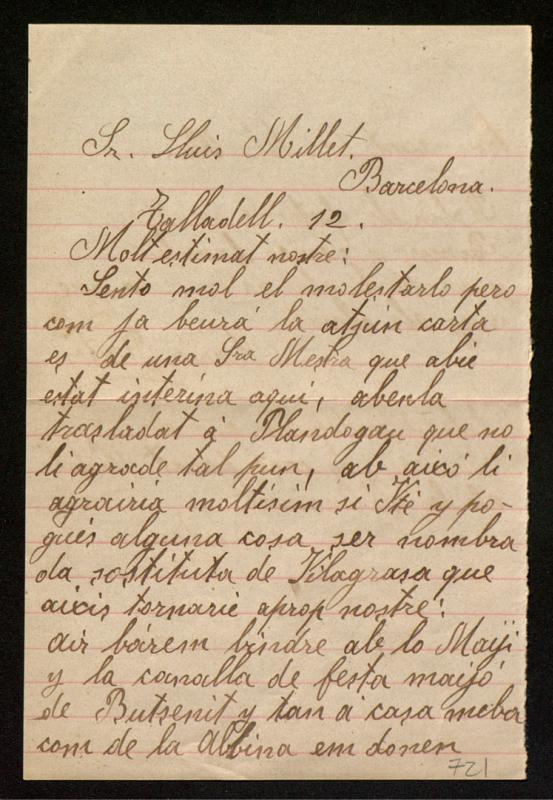 Sr. Lluis Millet.
Barcelona.
Talladell. 12.
Molt estimat nostre:
Sento mol el molestarlo pero
com ja beurá la atjún carta
es de una Sra Mestra que abie
estat interina aquí, abenla
trasladat á Plandogau que no
li agrade tal pun, ab aixó li
agrairia moltísim si Vté y po-
gués alguna cosa ser nombra
da sostituta de Vilagrasa que
aixis tornarié aprop nostre:
air bárem bindre ab lo Maiji
y la canalla de festa maijó
de Butsenit y tan á casa meba
com de la Albina em donen
721